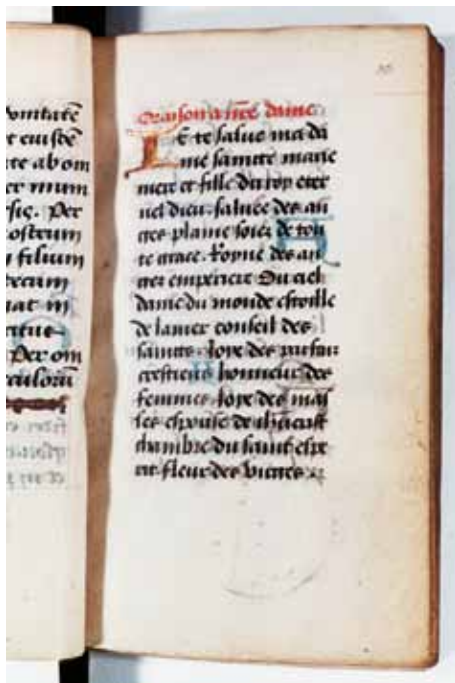 omitatē
t eiusdē
te ab om
er mun
sic. Per
ostrum
filium
tecum
nat in
ritus
Per om
culorū
Oraison a nře dame
IE te salue ma da
me sainte marie
mere et fille du roy eter
nel dieu. saluee des an
ges plaine soies de tou
te grace. Royne des an
ges emperiere Du ciel
dame du monde estoille
de la mer conseil des
saints. Joye des parfais
crestiens honneur des
femmes. Joye des mal
les espouse de
chambre du saint espe
rit. fleur des